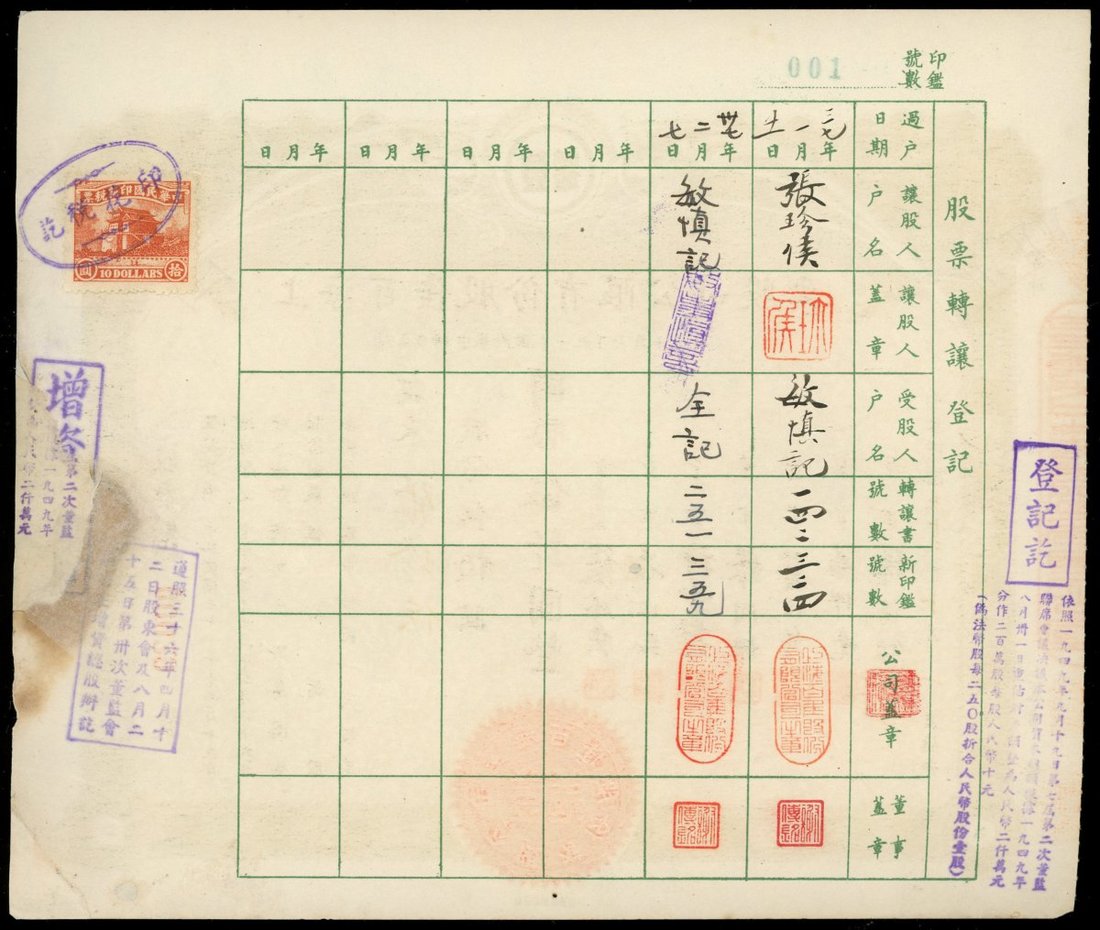 印鑑
號數
001
股票轉讓登記
過戶日期
讓股人戶名
讓股人蓋章
受股人戶名
轉讓書號數
新印鑑號數
公司蓋章
董事蓋章
三七年一月十一日
張珍侯
敏慎記
一四二
三三四
卅七年二月七日
敏慎記
仝記
二五一
三五九
年月日
年月日
年月日
年月日
中華民國印花稅票
拾圓
10 DOLLARS
印花稅訖
登記訖
依照一九四九年九月十九日第七屆第二次董監
聯席會議決議本公司資本
八月卅一日重估 一九四九年
分作二百萬股每股人民幣十元 為人民幣二仟萬元
（偽法幣股每二五〇股折合人民幣股份壹股）
增
第二次董監
一九四九年
人民幣二仟萬元
遵照三十六年四月十
二日股東會及八月二
十五日第卅次董監會
增資總股辦訖